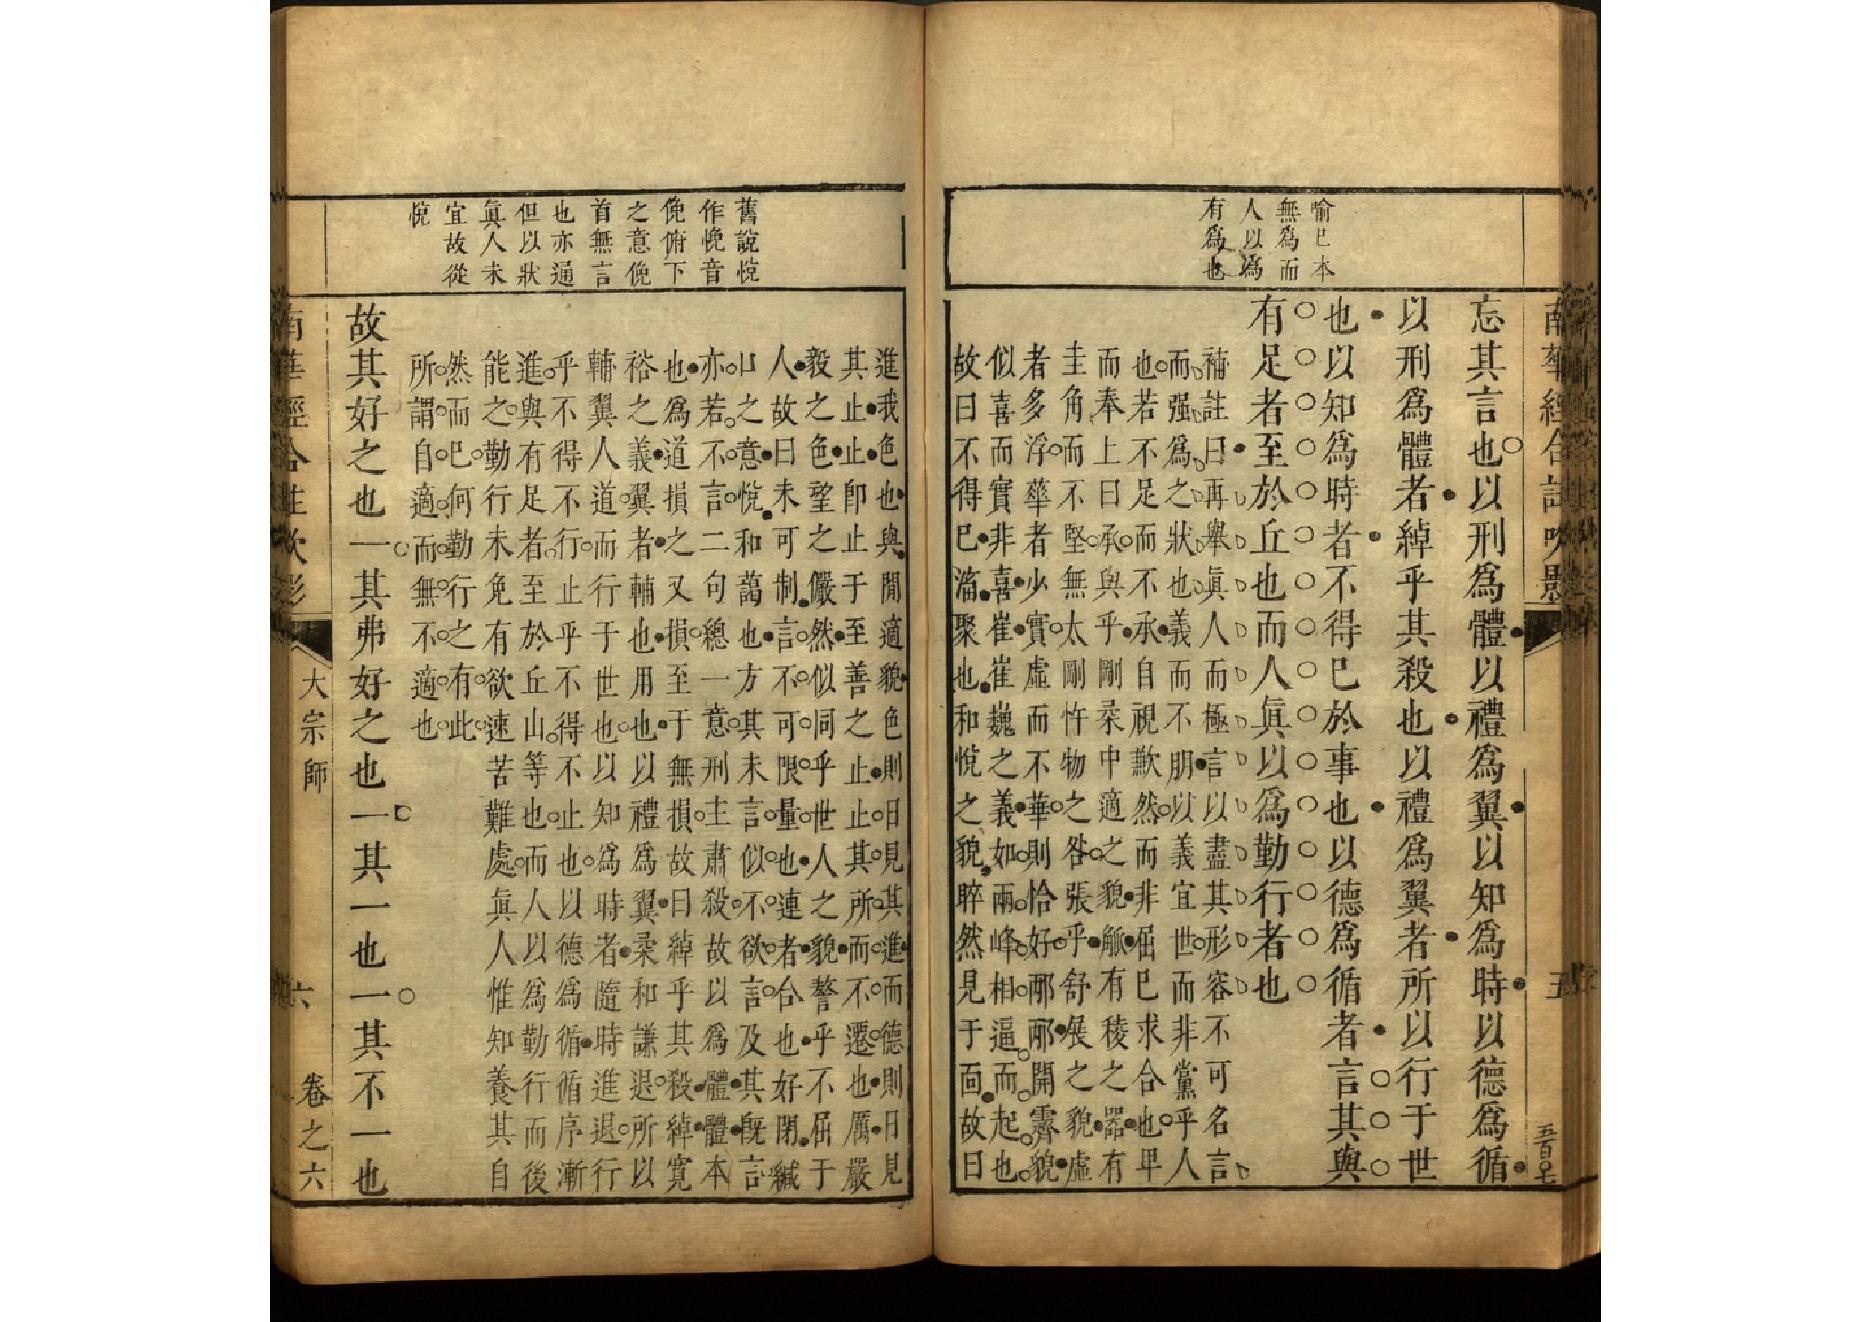 南華經合註吹影
五
五百〇七
喻巳本
無爲而
人以爲
有爲也
忘其言也以刑爲體以禮爲翼以知爲時以德爲循
以刑爲體者綽乎其殺也以禮爲翼者所以行于世
也以知爲時者不得巳於事也以德爲循者言其與
有足者至於丘也而人眞以爲勤行者也
補註曰再舉眞人而極言以盡其形容不可名言
而强爲之狀也義而不朋以義宜世而非黨乎人
也若不足而不承自視歉然而非屈巳求合也畀
而奉上曰承與乎剛柔中適之貌觚有稜之器有
圭角而不堅無太剛忤物之咎張乎舒展之貌虛
者多浮華者少實虛而不華則恰好邴邴開霽貌
似喜而實非喜崔崔巍之義如兩峰相逼而起也
故曰不得巳滀聚也和悅之貌睟然見于面故曰
舊說悗
作悗音
俛俯下
之意俛
首無言
也亦通
但以狀
眞人未
宜故從
悅
進我色也與閒適貌色則日見其進而德則日見
其止止卽止于至善之止止其所而不遷也厲嚴
毅之色望之儼然似同乎世人之貌謷乎不屈于
人故曰未可制言不可限量也連者合也好閉緘
口之意悅和藹也方其未言似不欲言及其旣言
亦若不言二句總一意刑主肅殺故以爲體體本
也爲道損之又損至于無損故曰綽乎其殺綽寛
裕之義翼者輔也用也以禮爲翼柔和謙退所以
輔翼人道而行于世也以知爲時者隨時進退行
乎不得不行止乎不得不止也以德爲循循序漸
進與有足者至於丘山等也而人以爲勤行而後
能之勤行未免有欲速苦難處眞人惟知養其自
然而巳何勤行之有此
所謂自適而無不適也
故其好之也一其弗好之也一其一也一其不一也
南華經合註吹影
大宗師
六
卷之六